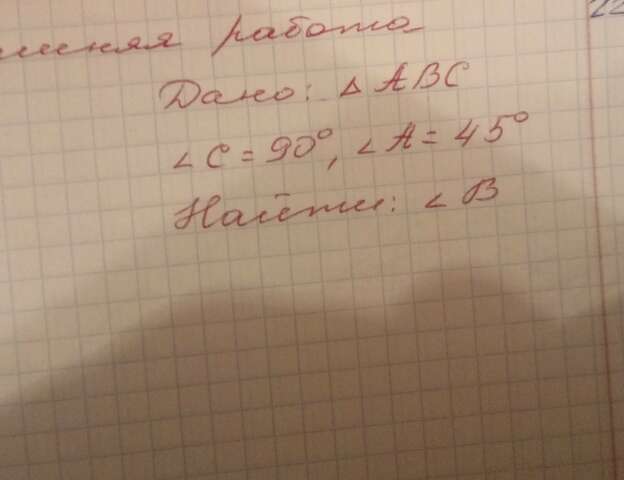 работа
Дано: △ ABC
∠ C = 90°, ∠ A = 45°
Найти: ∠ B